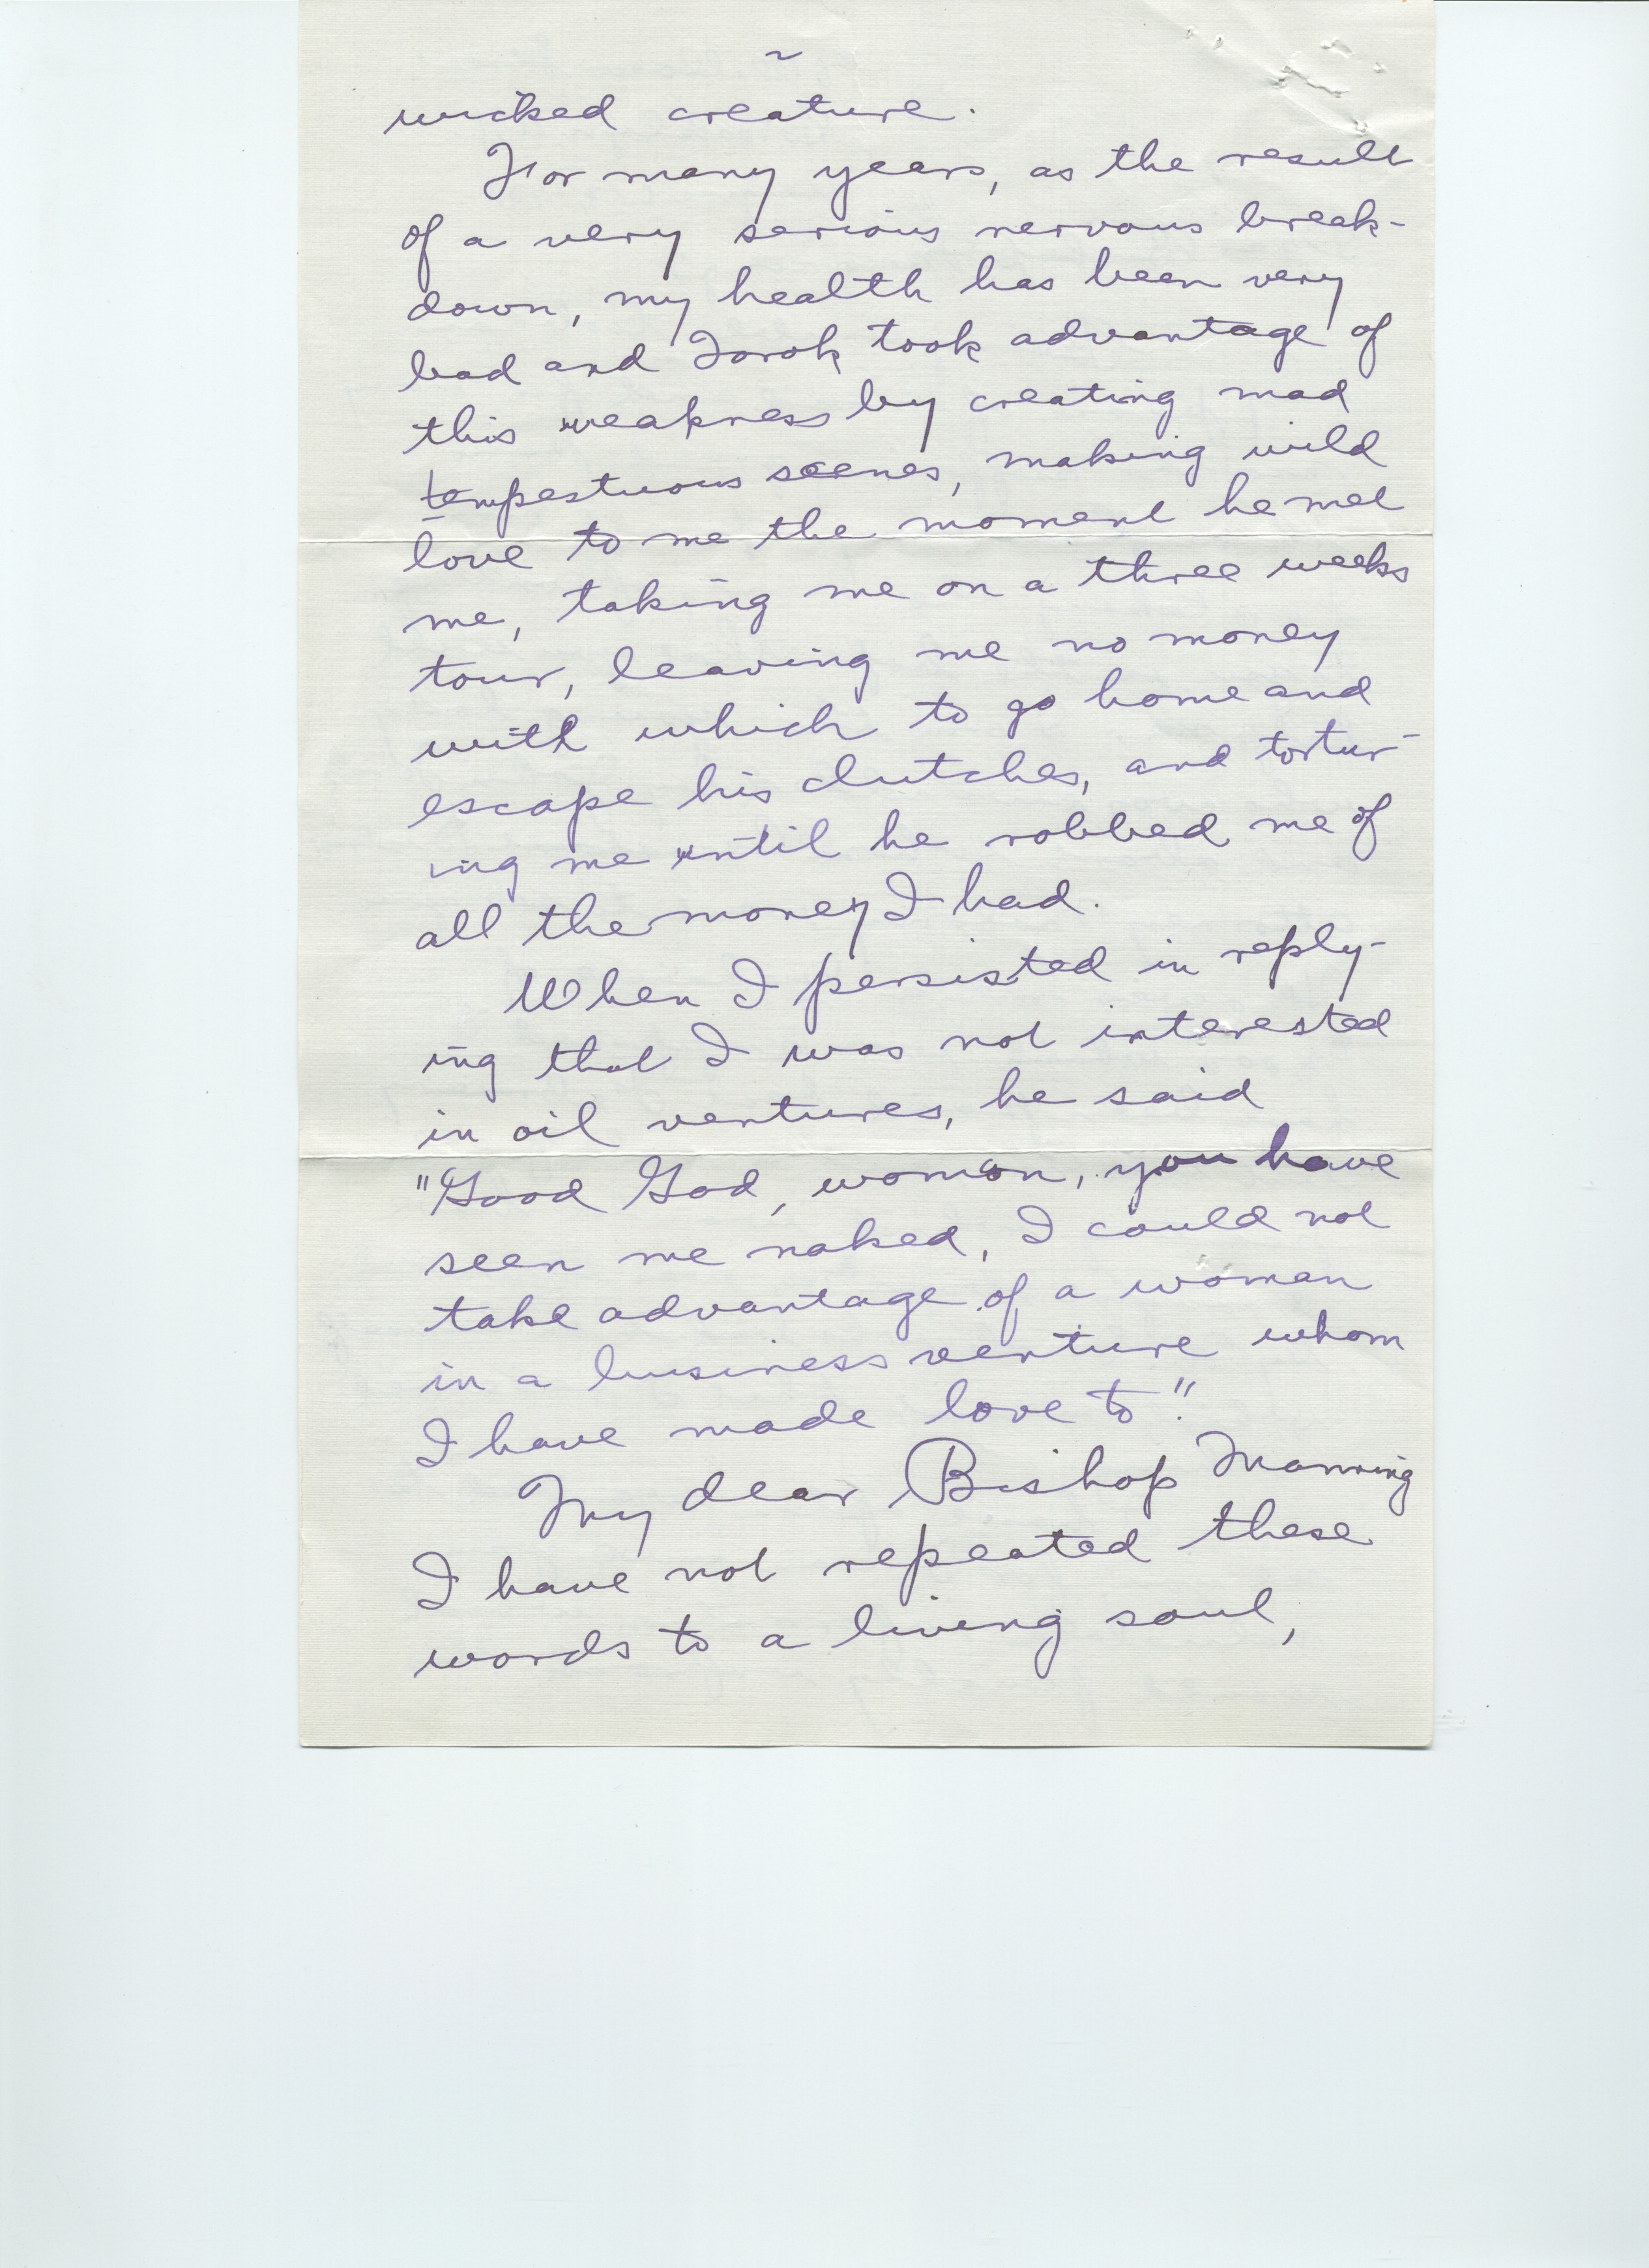 2
wicked creature.
For many years, as the result
of a very serious nervous break-
down, my health has been very
bad and Torok took advantage of
this weakness by creating mad
tempestuous scenes, making wild
love to me the moment he met
me, taking me on a three weeks
tour, leaving me no money
with which to go home and
escape his clutches, and tortur-
ing me until he robbed me of
all the money I had.
When I persisted in reply-
ing that I was not interested
in oil ventures, he said
"Good God, woman, you have
seen me naked, I could not
take advantage of a woman
in a business venture whom
I have made love to".
My dear Bishop Manning
I have not repeated these
words to a living soul,